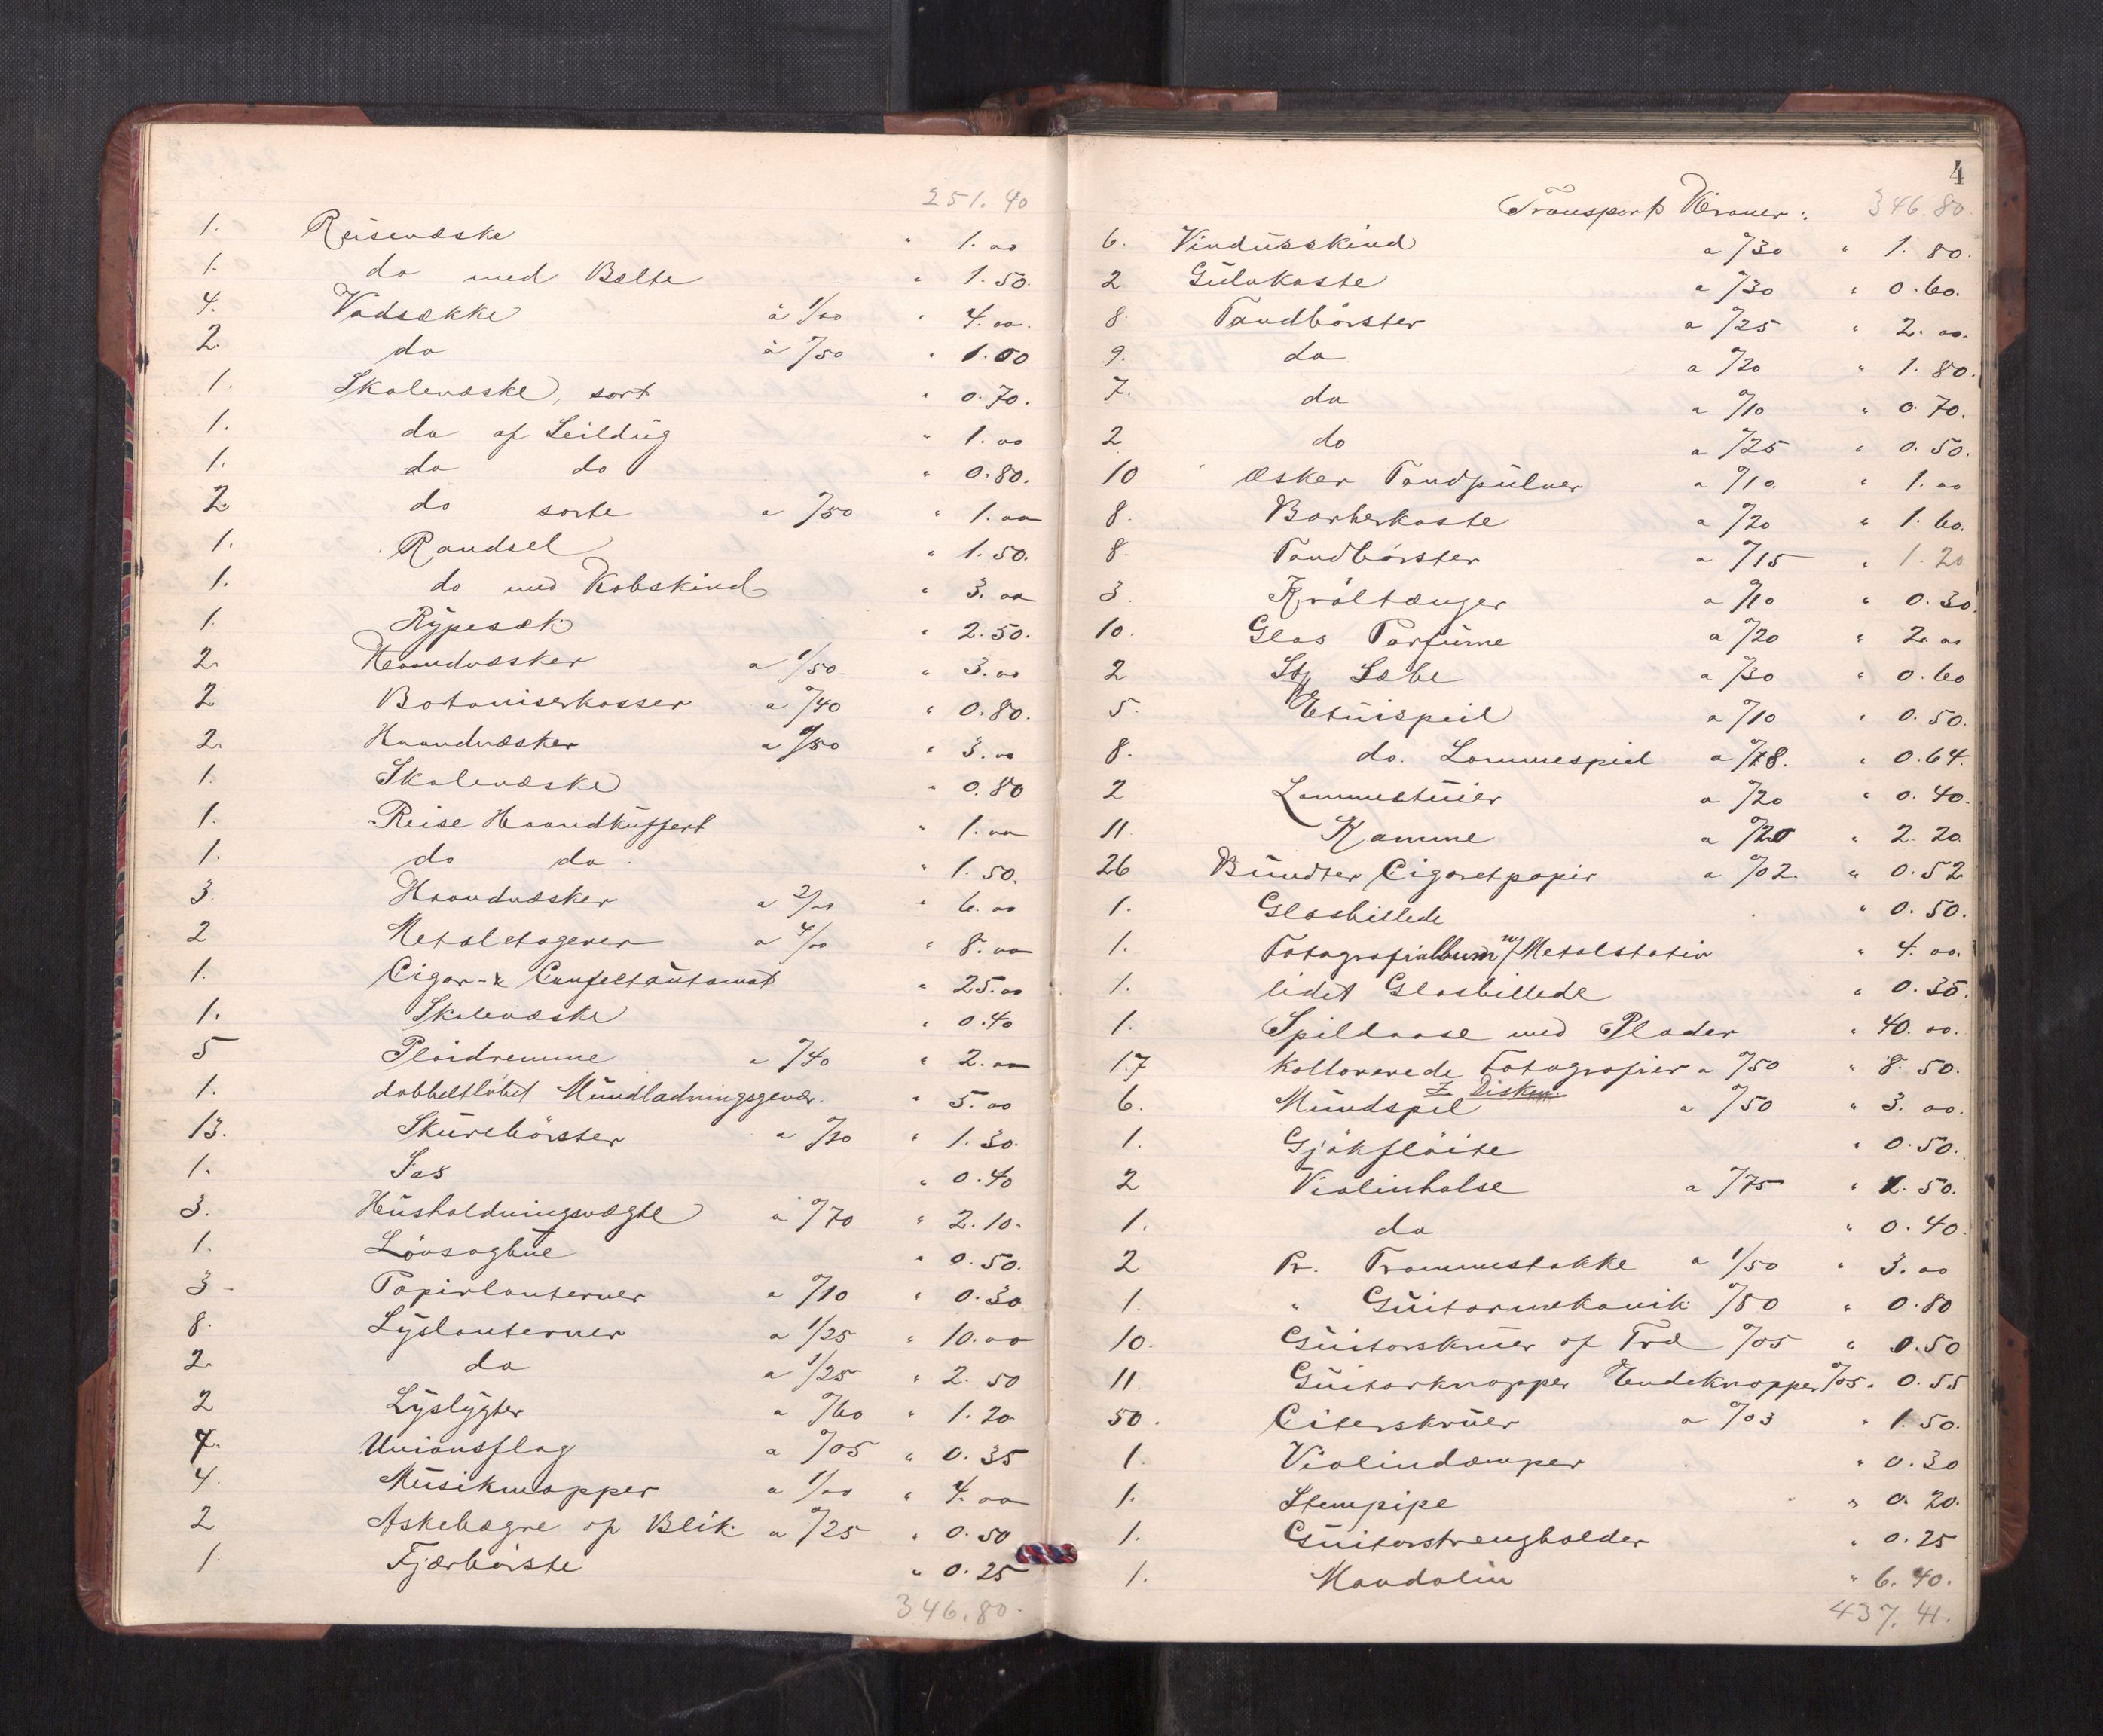 251.40
1. Reisevæske " 1.00
1. do med Belte " 1.50.
4. Vadsække à 1/00 " 4.00.
2. do à 0/50 " 1.00
1. Skolevæske, sort " 0.70.
1. do af Seildug " 1.00
1. do do " 0.80.
2 do sorte a 0/50 " 1.00
1. Randsel " 1.50.
1. do med Kobskind " 3.00
1. Rypesæk " 2.50.
2. Haandvæsker a 1/50 " 3.00
2 Botaniserkasser a 0/40 " 0.80.
2. Haandvæsker a /50 " 3.00
1. Skolevæske " 0.80
1. Reise Haandkuffert " 1.00
1. do do " 1.50.
3. Haandvæsker a 2/00 " 6.00
2 Metaletagerer a 4/00 " 8.00
1. Cigar- & Confectautomat " 25.00
1. Skolevæske " 0.40
5 Plaidremme a 0/40 " 2.00
1. dobbeltløbet Mundladningsgevær. " 5.00
13. Skurebörster a 0/10 " 1.30.
1. Sax " 0.40
3. Husholdningsvægte a 0/70 " 2.10.
1. Lövsagbue " 0.50.
3 Papirlanterner a 0/10 " 0.30
8. Lyslanterner a 1/25 " 10.00
2. do a 1/25 " 2.50
2 Lyslygter a 0/60 " 1.20
7. Unionsflag a 0/05 " 0.35
4. Musikmapper a 1/00 " 4.00
2 Askebægre af Blik a 0/25 " 0.50
1 Fjærbörste " 0.25
346.80.
4
Transport Kroner: 346.80
6. Vindusskind a 0/30 " 1.80.
2 Gulvkoste a 0/30 " 0.60.
8 Tandbörster a 0/25 " 2.00.
9. do a 0/20 " 1.80.
7. do a 0/10 " 0.70.
2 do a 0/25 " 0.50.
10 Æsker Tandpulver a 0/10. " 1.00
8. Barberkoste a 0/20 " 1.60.
8. Tandbörster a 0/15 " 1.20
3. Kröltænger a 0/10 " 0.30.
10. Glas Parfume a 0/20 " 2.00
2 Stk Sæbe a 0/30 " 0.60
5. Etuispeil a 0/10 " 0.50.
8. do. Lommespeil a 0/8. " 0.64.
2 Lommeetuier a 0/20 " 0.40.
11. Kamme a 0/20 " 2.20.
26 Bundter Cigaretpapir a 0/02. " 0.52
1. Glasbillede " 0.50.
1. Fotografialbum m/Metalstativ " 4.00.
1. lidet Glasbillede " 0.35.
1. Spildaase med Plader " 40.00.
17 kollorerede Fotografier a 0/50 " 8.50.
6. Mundspil 7 Disken. a 0/50 " 3.00.
1. Gjökflöite " 0.50.
2 Violinhalse a 0/75 " 1.50.
1. do " 0.40.
2 Pr. Trommestokke a 1/50 " 3.00
1. " Guitarmekanik 0/80 " 0.80
10. Guitarskruer af Træ 0/05 " 0.50
11. Guitarknapper Endeknapper 0/05. 0.55
50. Citerskruer a 0/03 " 1.50.
1. Violindemper " 0.30
1. Stempipe " 0.20.
1. Guitarstrengholder " 0.25
1. Mandolin " 6.40.
437.41.